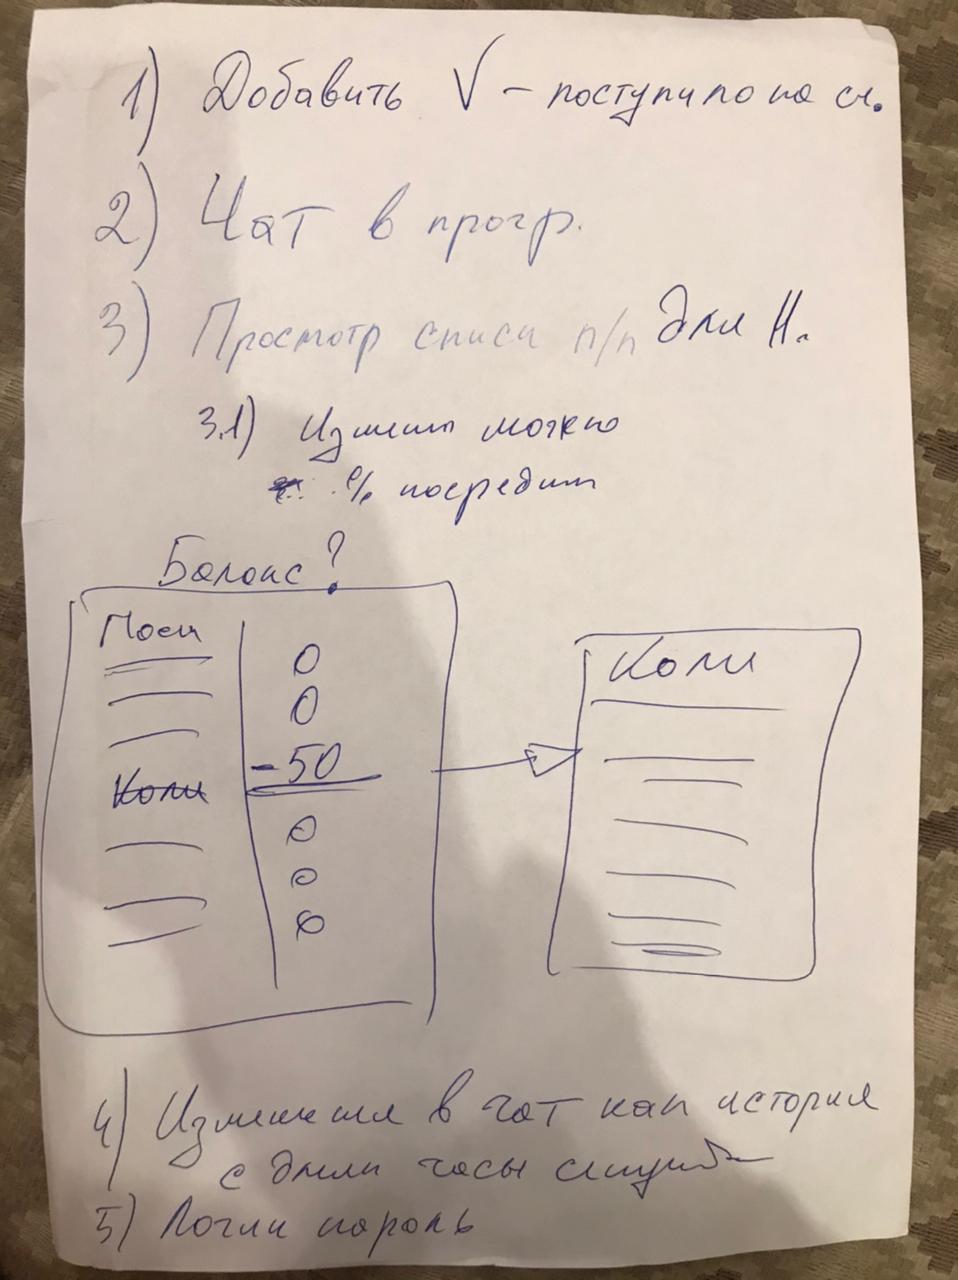 1) Добавить V – поступило на сч.
2) Чат в прогр.
3) Просмотр списи п/п для Н.
3.1) Измены можно
% посредит
Баланс?
Поец
0
0
-50
Коли
0
0
0
Коли
4) Изменения в чат как история
с дали часы
5) Логин пароль